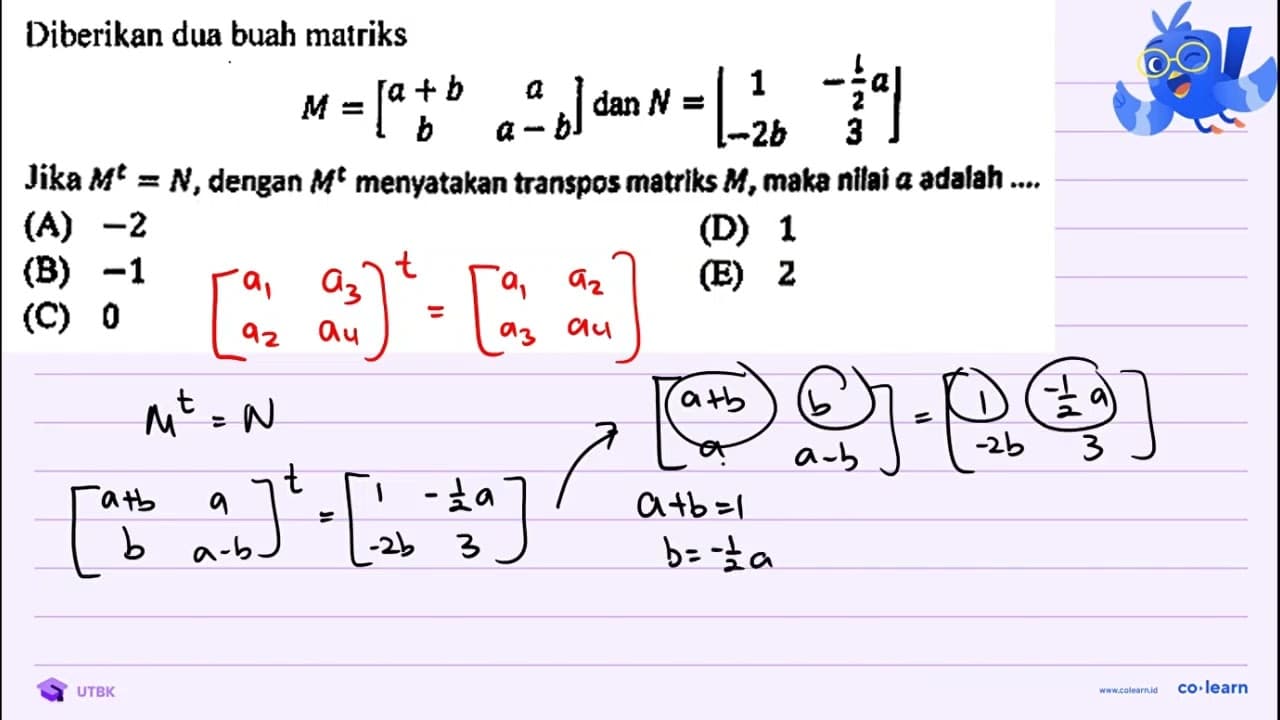 Diberikan dua buah matriks
M = [a + b a
b a − b] dan N = [1 −1/2 a
−2b 3]
Jika Mᵗ = N, dengan Mᵗ menyatakan transpos matriks M, maka nilai a adalah ....
(A) −2
(B) −1
(C) 0
(D) 1
(E) 2
[a₁ a₃
a₂ a₄]ᵗ = [a₁ a₂
a₃ a₄]
Mᵗ = N
[a+b a
b a-b]ᵗ = [1 -1/2 a
-2b 3]
[a+b b
a a-b] = [1 -1/2 a
-2b 3]
a+b=1
b=-1/2 a
UTBK
www.colearn.id
co·learn